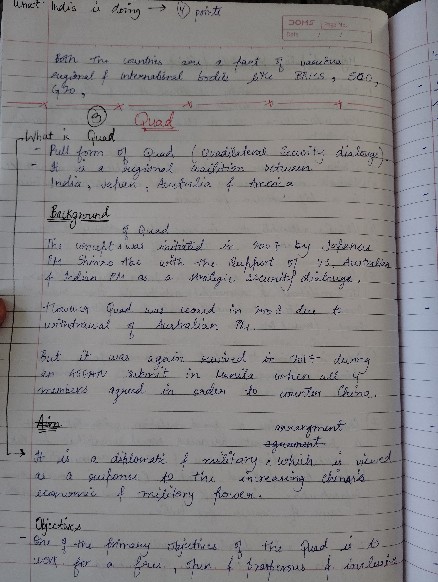 What India is doing → 4 points
DOMS Page No.
Date / /
Both the countries are a part of various
regional & international bodies like BRICS, SCO,
G20,
③ Quad
What is Quad
- Full form of Quad (Quadilateral Security dialouge).
- It is a regional institution between
India, Japan, Australia & America
Background
of Quad
The concept was initiated in 2007 by Japanese
PM Shinzo Abe with the support of US, Australian
& Indian PM as a strategic security dialouge.
However Quad was ceased in 2008 due to
withdrawal of Australian PM.
But it was again revived in 2017 during
an ASEAN Submit in Manila when all 4
members agreed in order to counter China.
Aim
arrangment
agreement
It is a diplomatic & military, which is viewed
as a response to the increasing China's
economic & military power.
Objectives
- One of the primary objectives of the Quad is to
work for a free, open & prosperous & inclusive